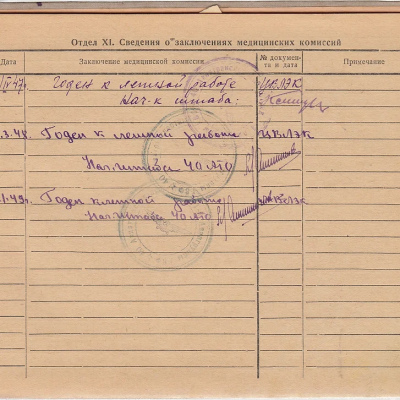 Отдел XI. Сведения о заключениях медицинских комиссий
Дата Заключение медицинской комиссии № докумен-та и дата Примечание
IV 47г. Годен к летной работе ЦВЛЭК
Нач-к штаба:
3.48. Годен к летной работе ЦВЛЭК
Нач. штаба ЧОАТО
1.49г. Годен к летной работе ЦВЛЭК
Нач. штаба ЧОАТО